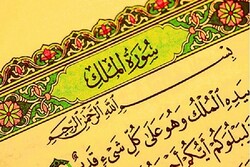 سُورَةُ الْمُلْكِ
بِسْمِ اللَّهِ الرَّحْمَٰنِ الرَّحِيمِ
بِيَدِهِ الْمُلْكُ وَهُوَ عَلَىٰ كُلِّ شَيْءٍ
أَيُّكُمْ